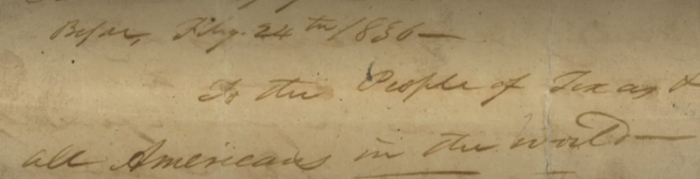 Bejar, Feby. 24th 1836—
To the People of Texas &
all Americans in the world—